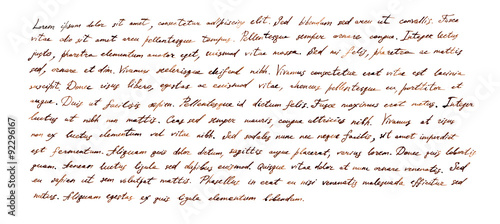 Lorem ipsum dolor sit amet, consectetur adipiscing elit. Sed bibendum sed arcu ut convallis. Fusce
vitae odio sit amet arcu pellentesque tempus. Pellentesque semper ornare congue. Integer lectus
justo, pharetra elementum auctor eget, euismod vitae massa. Sed mi felis, pharetra ac mattis
sed, ornare et dui. Vivamus scelerisque eleifend nibh. Vivamus consectetur erat vitae est lacinia
suscipit. Donec risus libero, egestas ac euismod vitae, rhoncus pellentesque ex, porttitor at
augue. Duis at facilisis sapien. Pellentesque id dictum felis. Fusce maximus erat metus. Integer
luctus ut nibh non mattis. Cras sed semper mauris, congue ultricies nibh. Vivamus at risus
non ex luctus elementum vel vitae nibh. Sed sodales nunc nec neque facilisis, sit amet imperdiet
est fermentum. Aliquam quis dolor dictum, sagittis augue placerat, varius lorem. Donec quis lobortis
quam. Aenean luctus ligula sed dapibus euismod. Quisque vitae dolor at sem ornare venenatis. Sed
eu sapien ut sem volutpat mattis. Phasellus in erat eu nisi venenatis malesuada efficitur sed
metus. Aliquam egestas ex quis ligula elementum bibendum.
92296167